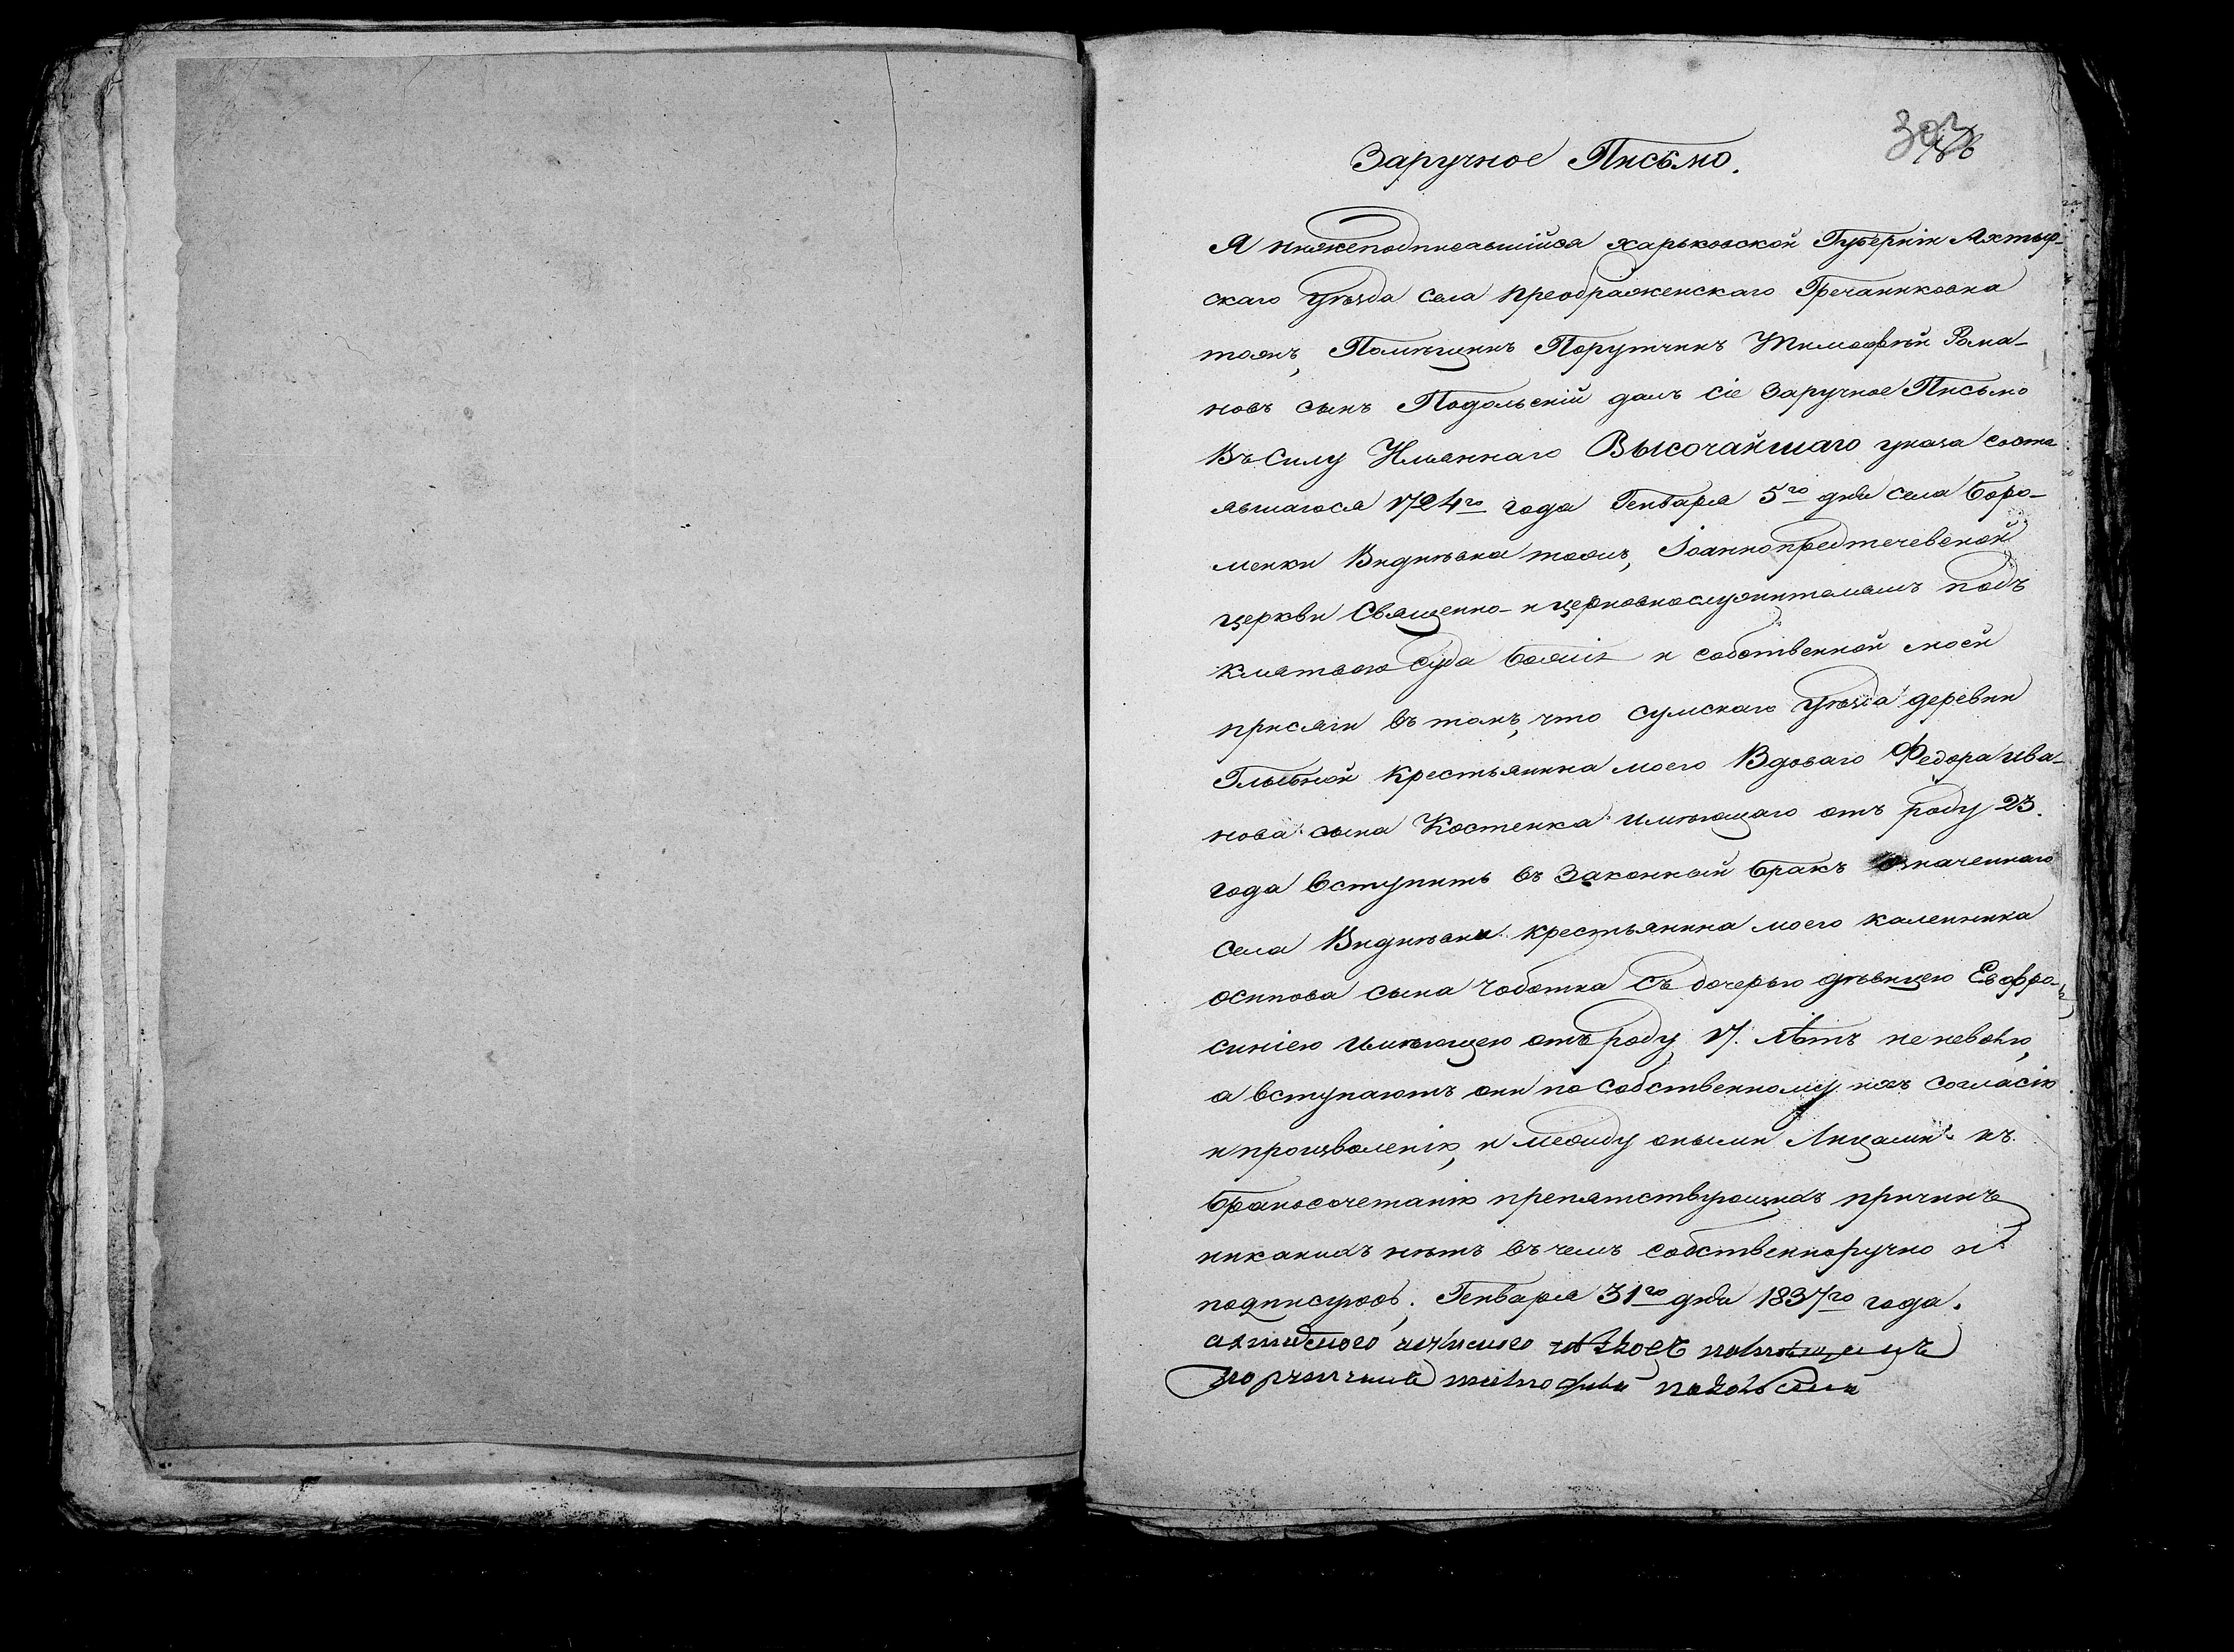 303
Заручное Письмо.
Я нижеподписавшійся харьковской Губерніи Ахтыр-
скаго уѣзда села преображенскаго Гречаниковка
тожъ, Помѣщикъ Порутчикъ Тимофѣй Рома-
новъ сынъ Подольскій далъ сіе Заручное Письмо
Въ Силу Имяннаго Высочайшаго указа состо
явшагося 1724го года Генваря 5го дня села Боро-
менки тожъ, Іоаннопредтечевской
церкви Священно- и церковнослужителямъ подъ
клятвою суда Божія и собственной моей
присяги въ томъ, что сумскаго уѣзда деревни
крестьянина моего Вдоваго Федора ива-
нова сына Костенка имѣющаго отъ роду 23.
года вступить въ Законный бракъ означеннаго
села крестьянина моего каленика
осипова сына Чоботка съ дочерью дѣвицею Евфро-
синіею имѣющею отъ роду 17. лѣтъ не неволю,
а вступаютъ они по собственному ихъ согласію
и произволенію, и между оными Лицами къ
бракосочетанію препятствующихъ причинъ
никакихъ нѣтъ въ чемъ собственноручно и
подписуюсь. Генваря 31го дня 1837го года.
порутчикъ тимофѣй подольский